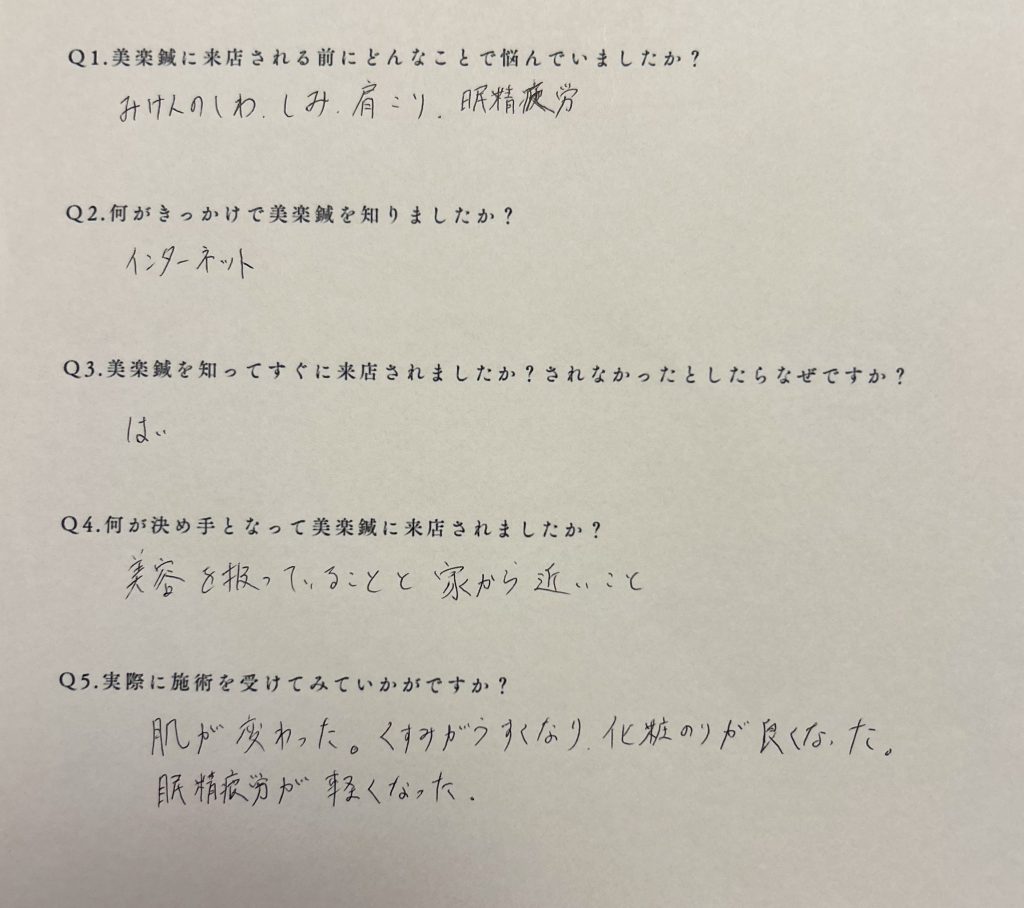 Q1.美楽鍼に来店される前にどんなことで悩んでいましたか？
みけんのしわ、しみ、肩こり、眠精疲労
Q2.何がきっかけで美楽鍼を知りましたか？
インターネット
Q3.美楽鍼を知ってすぐに来店されましたか？されなかったとしたらなぜですか？
はい
Q4.何が決め手となって美楽鍼に来店されましたか？
美容を扱っていることと家から近いこと
Q5.実際に施術を受けてみていかがですか？
肌が変わった。くすみがうすくなり、化粧のりが良くなった。
眠精疲労が軽くなった。